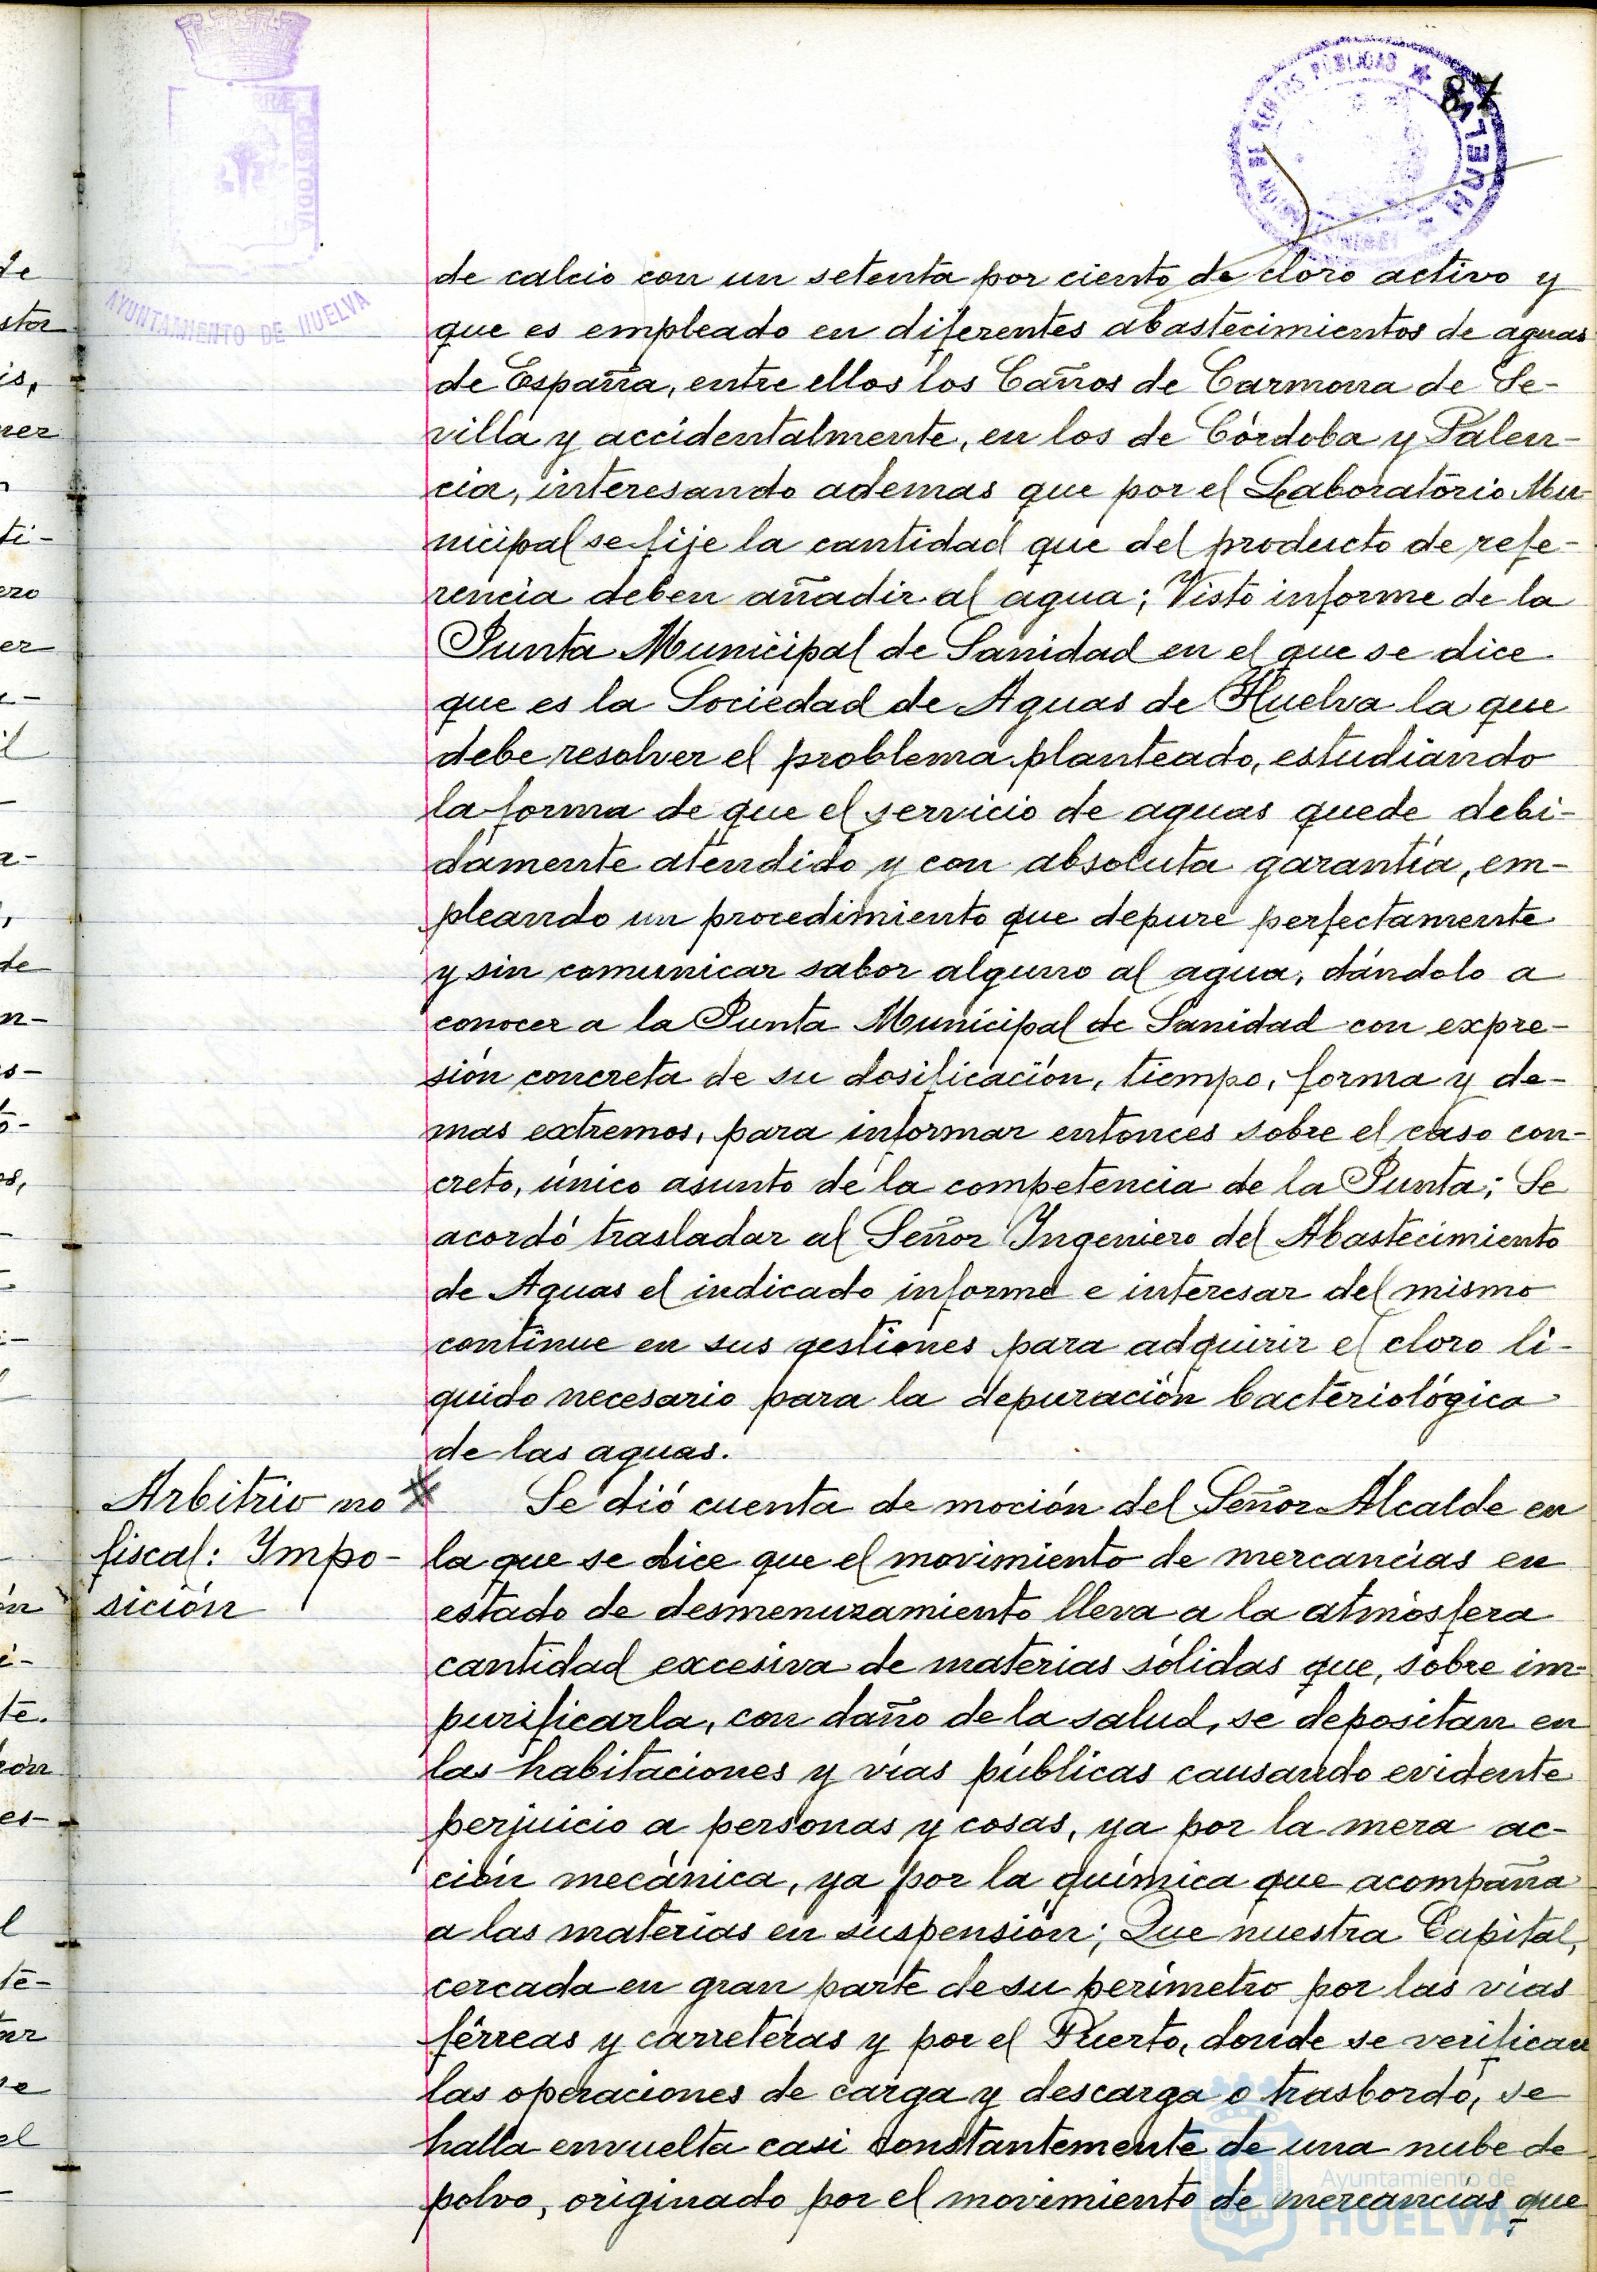 87
AYUNTAMIENTO DE HUELVA
de calcio con un setenta por ciento de cloro activo y
que es empleado en diferentes abastecimientos de aguas
de España, entre ellos los Caños de Carmona de Se-
villa y accidentalmente, en los de Córdoba y Palen-
cia, interesando ademas que por el Laboratorio Mu-
nicipal se fije la cantidad que del producto de refe-
rencia deben añadir al agua; Visto informe de la
Junta Municipal de Sanidad en el que se dice
que es la Sociedad de Aguas de Huelva la que
debe resolver el problema planteado, estudiando
la forma de que el servicio de aguas quede debi-
damente atendido y con absoluta garantía, em-
pleando un procedimiento que depure perfectamente
y sin comunicar sabor alguno al agua, dándolo a
conocer a la Junta Municipal de Sanidad con expre-
sión concreta de su dosificación, tiempo, forma y de-
mas extremos, para informar entonces sobre el caso con-
creto, único asunto de la competencia de la Junta; Se
acordó trasladar al Señor Ingeniero del Abastecimiento
de Aguas el indicado informe e interesar del mismo
continue en sus gestiones para adquirir el cloro li-
quido necesario para la depuración bacteriológica
de las aguas.
Arbitrio no
fiscal: Impo-
sición
Se dió cuenta de moción del Señor Alcalde en
la que se dice que el movimiento de mercancías en
estado de desmenuzamiento lleva a la atmósfera
cantidad excesiva de materias sólidas que, sobre im-
purificarla, con daño de la salud, se depositan en
las habitaciones y vías públicas causando evidente
perjuicio a personas y cosas, ya por la mera ac-
ción mecánica, ya por la química que acompaña
a las materias en suspensión; Que nuestra Capital,
cercada en gran parte de su perímetro por las vías
férreas y carreteras y por el Puerto, donde se verifican
las operaciones de carga y descarga o trasbordo, se
halla envuelta casi constantemente de una nube de
polvo, originado por el movimiento de mercancías que
Ayuntamiento de
HUELVA